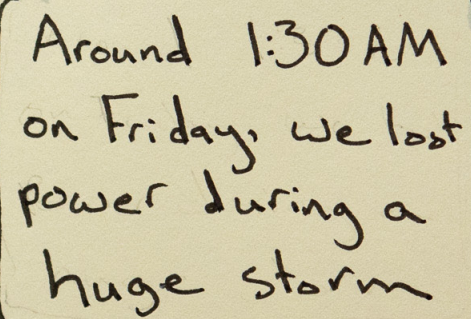 Around 1:30 AM
on Friday, we lost
power during a
huge storm